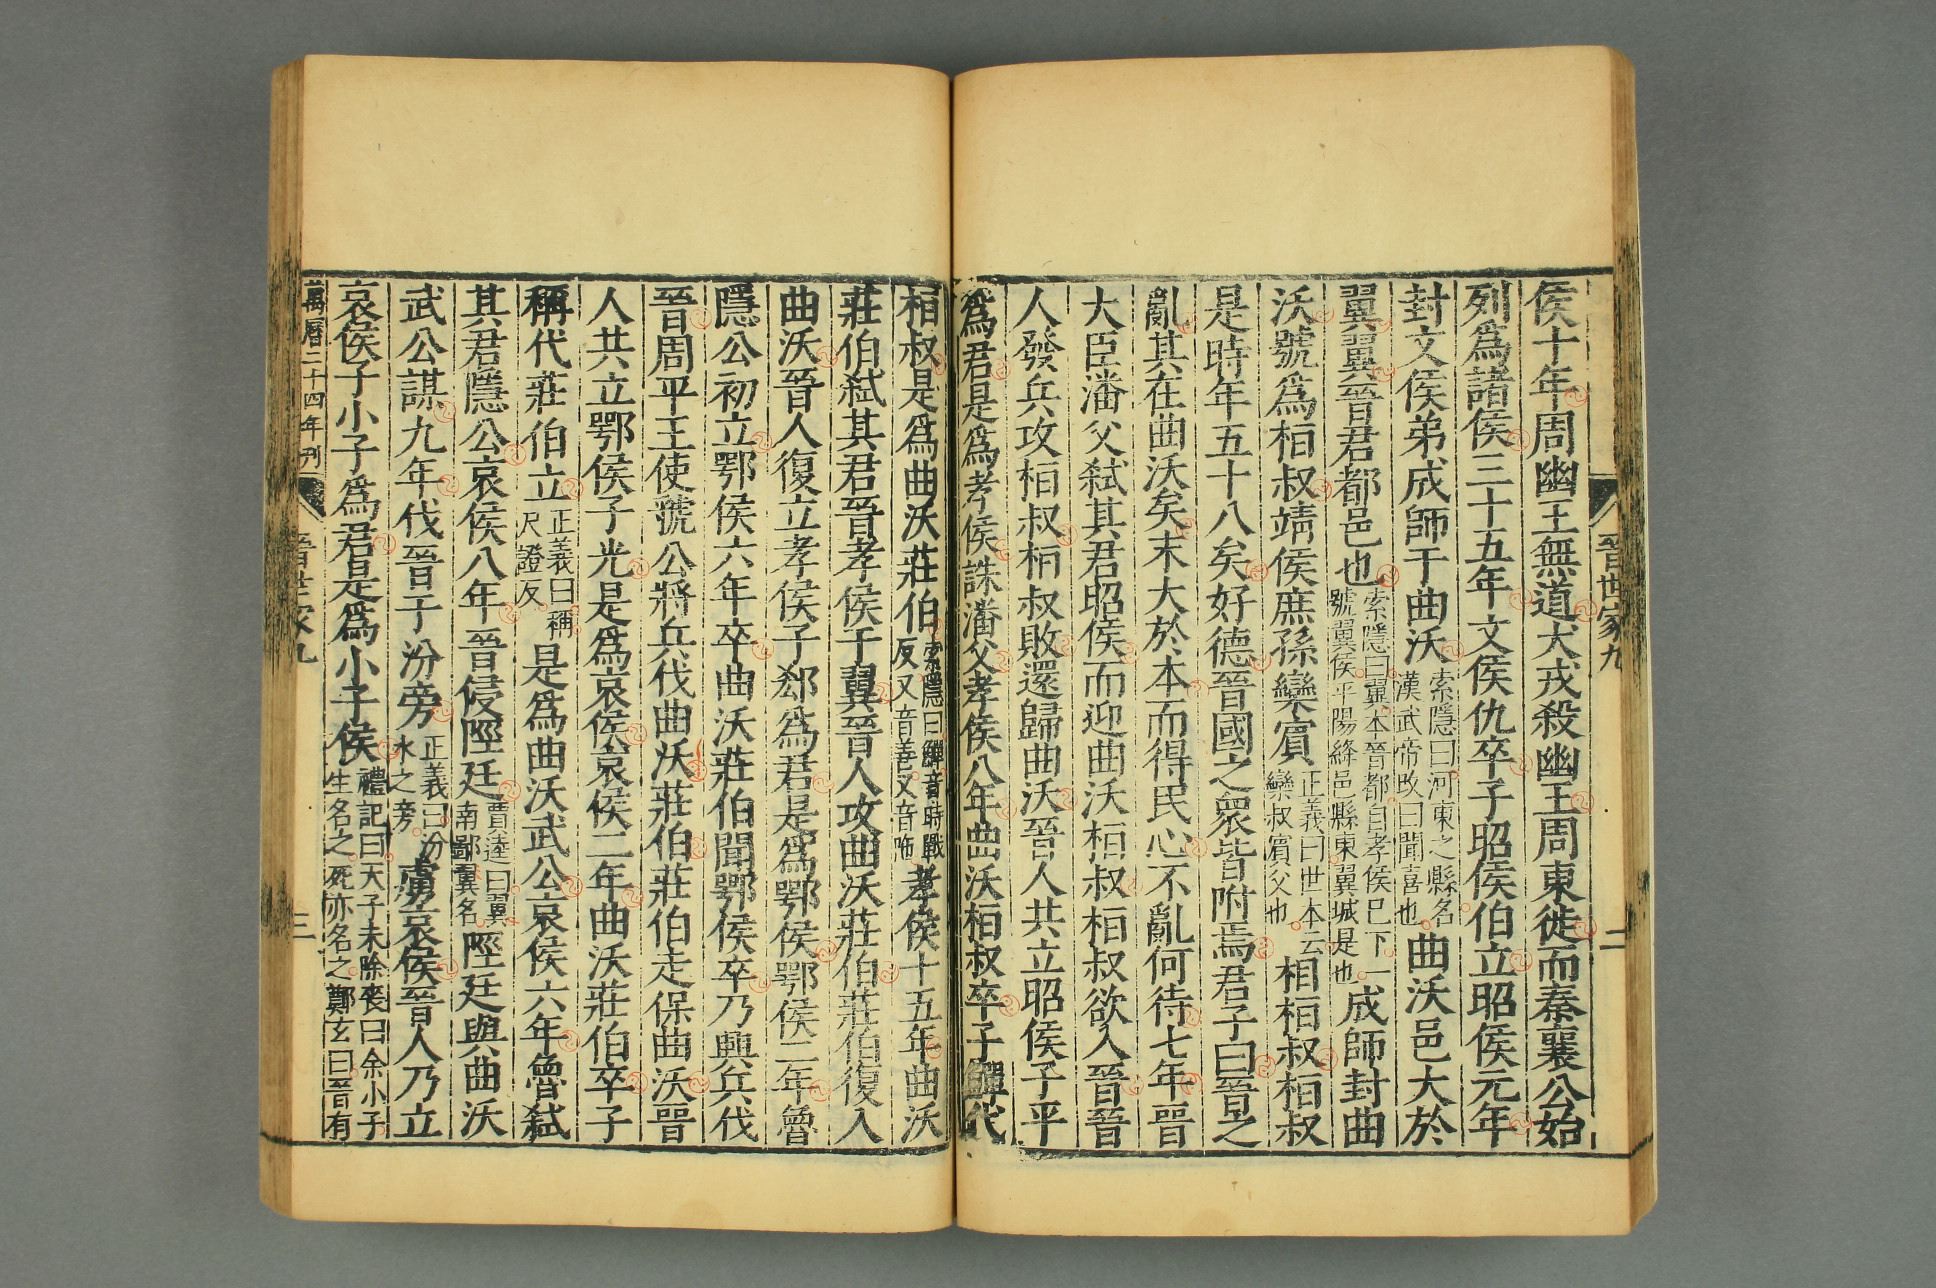 晉世家九
二
侯十年周幽王無道犬戎殺幽王周東徙而秦襄公始
列爲諸侯三十五年文侯仇卒子昭侯伯立昭侯元年
封文侯弟成師于曲沃索隱曰河東之縣名漢武帝改曰聞喜也曲沃邑大於
翼翼晉君都邑也索隱曰翼本晉都自孝侯已下一號翼侯平陽絳邑縣東翼城是也成師封曲
沃號爲桓叔靖侯庶孫欒賓正義曰世本云欒叔賓父也相桓叔桓叔
是時年五十八矣好德晉國之衆皆附焉君子曰晉之
亂其在曲沃矣末大於本而得民心不亂何待七年晉
大臣潘父弑其君昭侯而迎曲沃桓叔桓叔欲入晉晉
人發兵攻桓叔桓叔敗還歸曲沃晉人共立昭侯子平
爲君是爲孝侯誅潘父孝侯八年曲沃桓叔卒子鱓代
桓叔是爲曲沃莊伯索隱曰鱓音時戰反又音善又音陁孝侯十五年曲沃
莊伯弑其君晉孝侯于翼晉人攻曲沃莊伯莊伯復入
曲沃晉人復立孝侯子郄爲君是爲鄂侯鄂侯二年魯
隱公初立鄂侯六年卒曲沃莊伯聞鄂侯卒乃興兵伐
晉周平王使虢公將兵伐曲沃莊伯莊伯走保曲沃晉
人共立鄂侯子光是爲哀侯哀侯二年曲沃莊伯卒子
稱代莊伯立正義曰稱尺證反是爲曲沃武公哀侯六年魯弑
其君隱公哀侯八年晉侵陘廷賈逵曰翼南鄙翼名陘廷與曲沃
武公謀九年伐晉于汾旁正義曰汾水之旁虜哀侯晉人乃立
哀侯子小子爲君是爲小子侯禮記曰天子未除喪曰余小子生名之死亦名之鄭玄曰晉有
萬曆二十四年刊
晉世家九
三